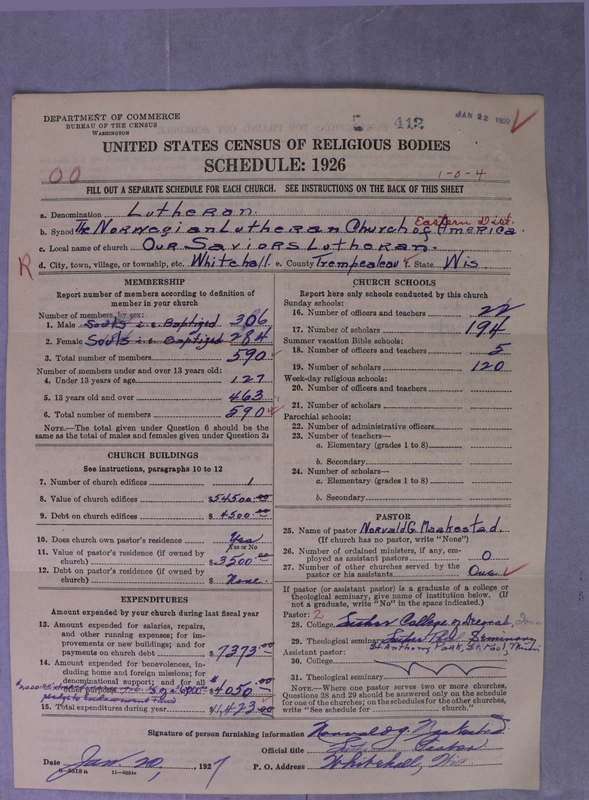 DEPARTMENT OF COMMERCE
BUREAU OF THE CENSUS
WASHINGTON
412
JAN 22
UNITED STATES CENSUS OF RELIGIOUS BODIES
SCHEDULE: 1926
00
1-0-4
FILL OUT A SEPARATE SCHEDULE FOR EACH CHURCH. SEE INSTRUCTIONS ON THE BACK OF THIS SHEET
a. Denomination Lutheran.
Eastern Dist.
b. Synod The Norwegian Lutheran Church of America.
c. Local name of church Our Saviors Lutheran.
R d. City, town, village, or township, etc. Whitehall. e. County Trempealeau f. State Wis.
MEMBERSHIP
Report number of members according to definition of
member in your church
Number of members by sex:
1. Male Souls i.e. Baptized 306
2. Female Souls i.e. Baptized 284
3. Total number of members 590
Number of members under and over 13 years old:
4. Under 13 years of age 127
5. 13 years old and over 463
6. Total number of members 590
NOTE.—The total given under Question 6 should be the
same as the total of males and females given under Question 3.
CHURCH BUILDINGS
See instructions, paragraphs 10 to 12
7. Number of church edifices 1
8. Value of church edifices $54500.00
9. Debt on church edifices $4500.00
10. Does church own pastor's residence Yes
Yes or No
11. Value of pastor's residence (if owned by
church) $3500.00
12. Debt on pastor's residence (if owned by
church) $ None.
EXPENDITURES
Amount expended by your church during last fiscal year
13. Amount expended for salaries, repairs,
and other running expenses; for im-
provements or new buildings; and for
payments on church debt $7373.00
14. Amount expended for benevolences, in-
cluding home and foreign missions; for
denominational support; and for all
other purposes $4050.00
pledge to Endowment Fund
15. Total expenditures during year $11,423.00
CHURCH SCHOOLS
Report here only schools conducted by this church
Sunday schools:
16. Number of officers and teachers 22
17. Number of scholars 194
Summer vacation Bible schools:
18. Number of officers and teachers 5
19. Number of scholars 120
Week-day religious schools:
20. Number of officers and teachers
21. Number of scholars
Parochial schools:
22. Number of administrative officers
23. Number of teachers—
a. Elementary (grades 1 to 8)
b. Secondary
24. Number of scholars—
a. Elementary (grades 1 to 8)
b. Secondary
PASTOR
25. Name of pastor Norvald G. Maakestad.
(If church has no pastor, write "None")
26. Number of ordained ministers, if any, em-
ployed as assistant pastors 0
27. Number of other churches served by the
pastor or his assistants One
If pastor (or assistant pastor) is a graduate of a college or
theological seminary, give name of institution below. (If
not a graduate, write "No" in the space indicated.)
Pastor: 2
28. College Luther College of Decorah, Iowa
29. Theological seminary Luther Theo. Seminary
St. Anthony Park, St. Paul, Minn.
Assistant pastor:
30. College
31. Theological seminary
NOTE.—Where one pastor serves two or more churches,
Questions 28 and 29 should be answered only on the schedule
for one of the churches; on the schedules for the other churches,
write "See schedule for church."
Signature of person furnishing information Norvald G. Maakestad
Official title Pastor
Date Jan 20, 1927 P. O. Address Whitehall, Wis